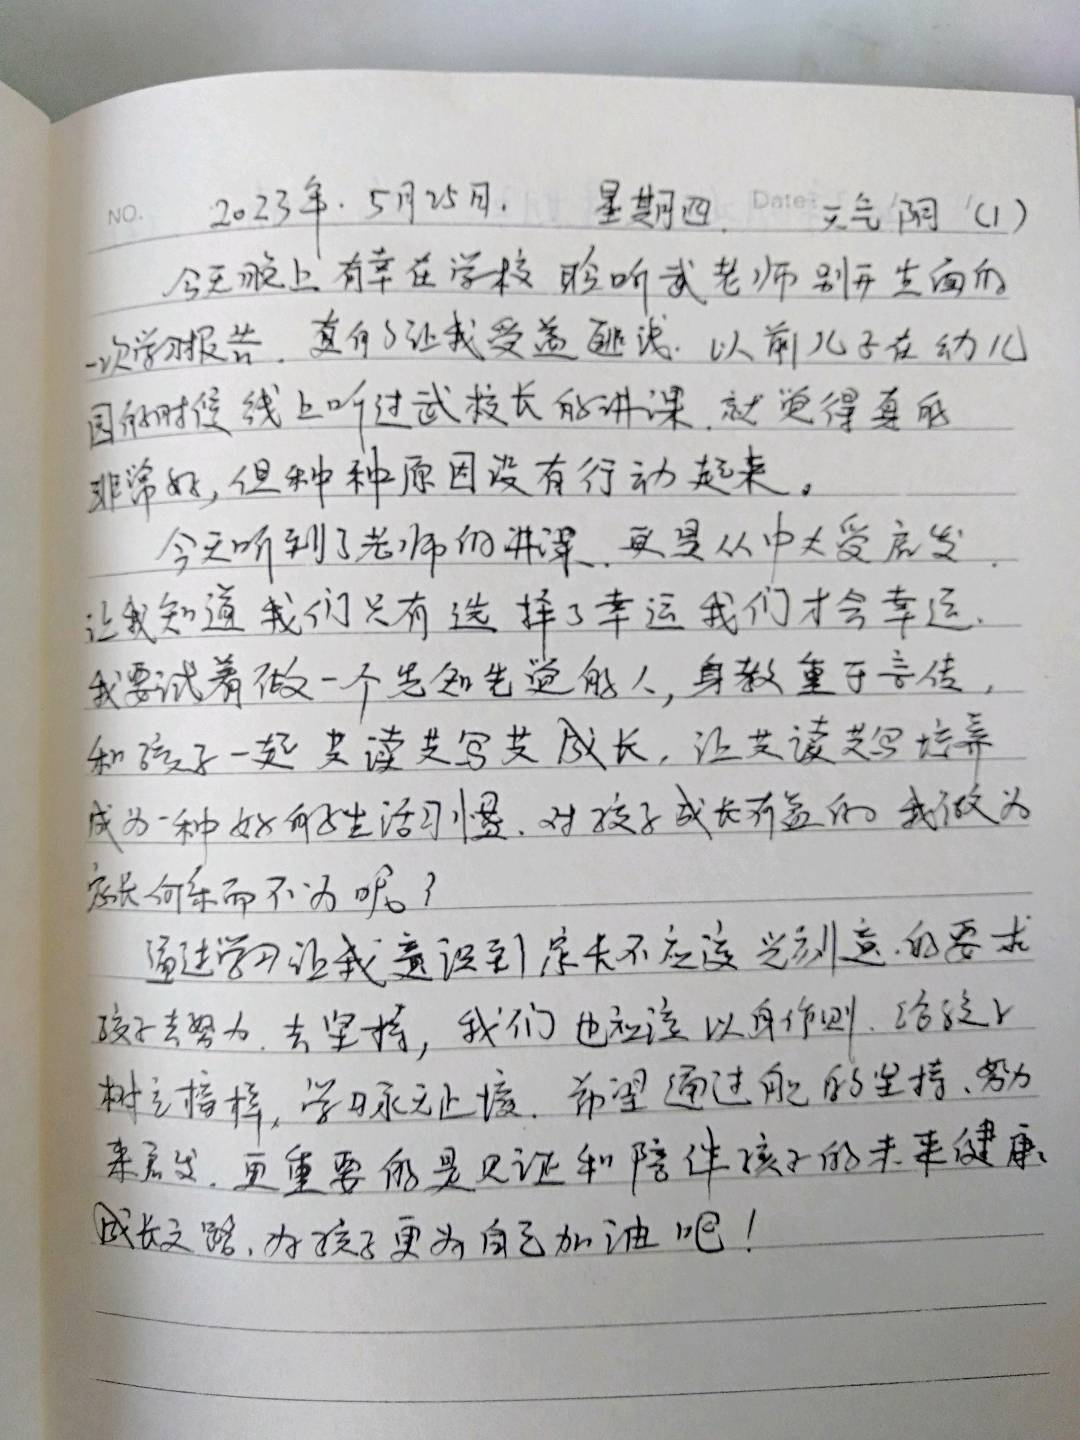 NO. 2023年.5月25日. 星期四. Date 天气 阴 (1)
今天晚上有幸在学校聆听武老师别开生面的
一次学习报告.真的了让我受益匪浅.以前儿子在幼儿
园的时候线上听过武校长的讲课.就觉得真的
非常好,但种种原因没有行动起来。
今天听到了老师的讲课.更是从中大受启发.
让我知道我们只有选择了幸运我们才会幸运.
我要试着做一个先知先觉的人,身教重于言传,
和孩子一起共读共写共成长,让共读共写培养
成为一种好的生活习惯.对孩子成长有益的我做为
家长何乐而不为呢?
通过学习让我意识到家长不应该光刻意.的要求
孩子去努力.去坚持,我们也应该以身作则.给孩子
树立榜样,学习永无止境.希望通过自己的坚持、努力
来启发.更重要的是见证和陪伴孩子的未来健康
成长之路.为孩子更为自己加油吧!